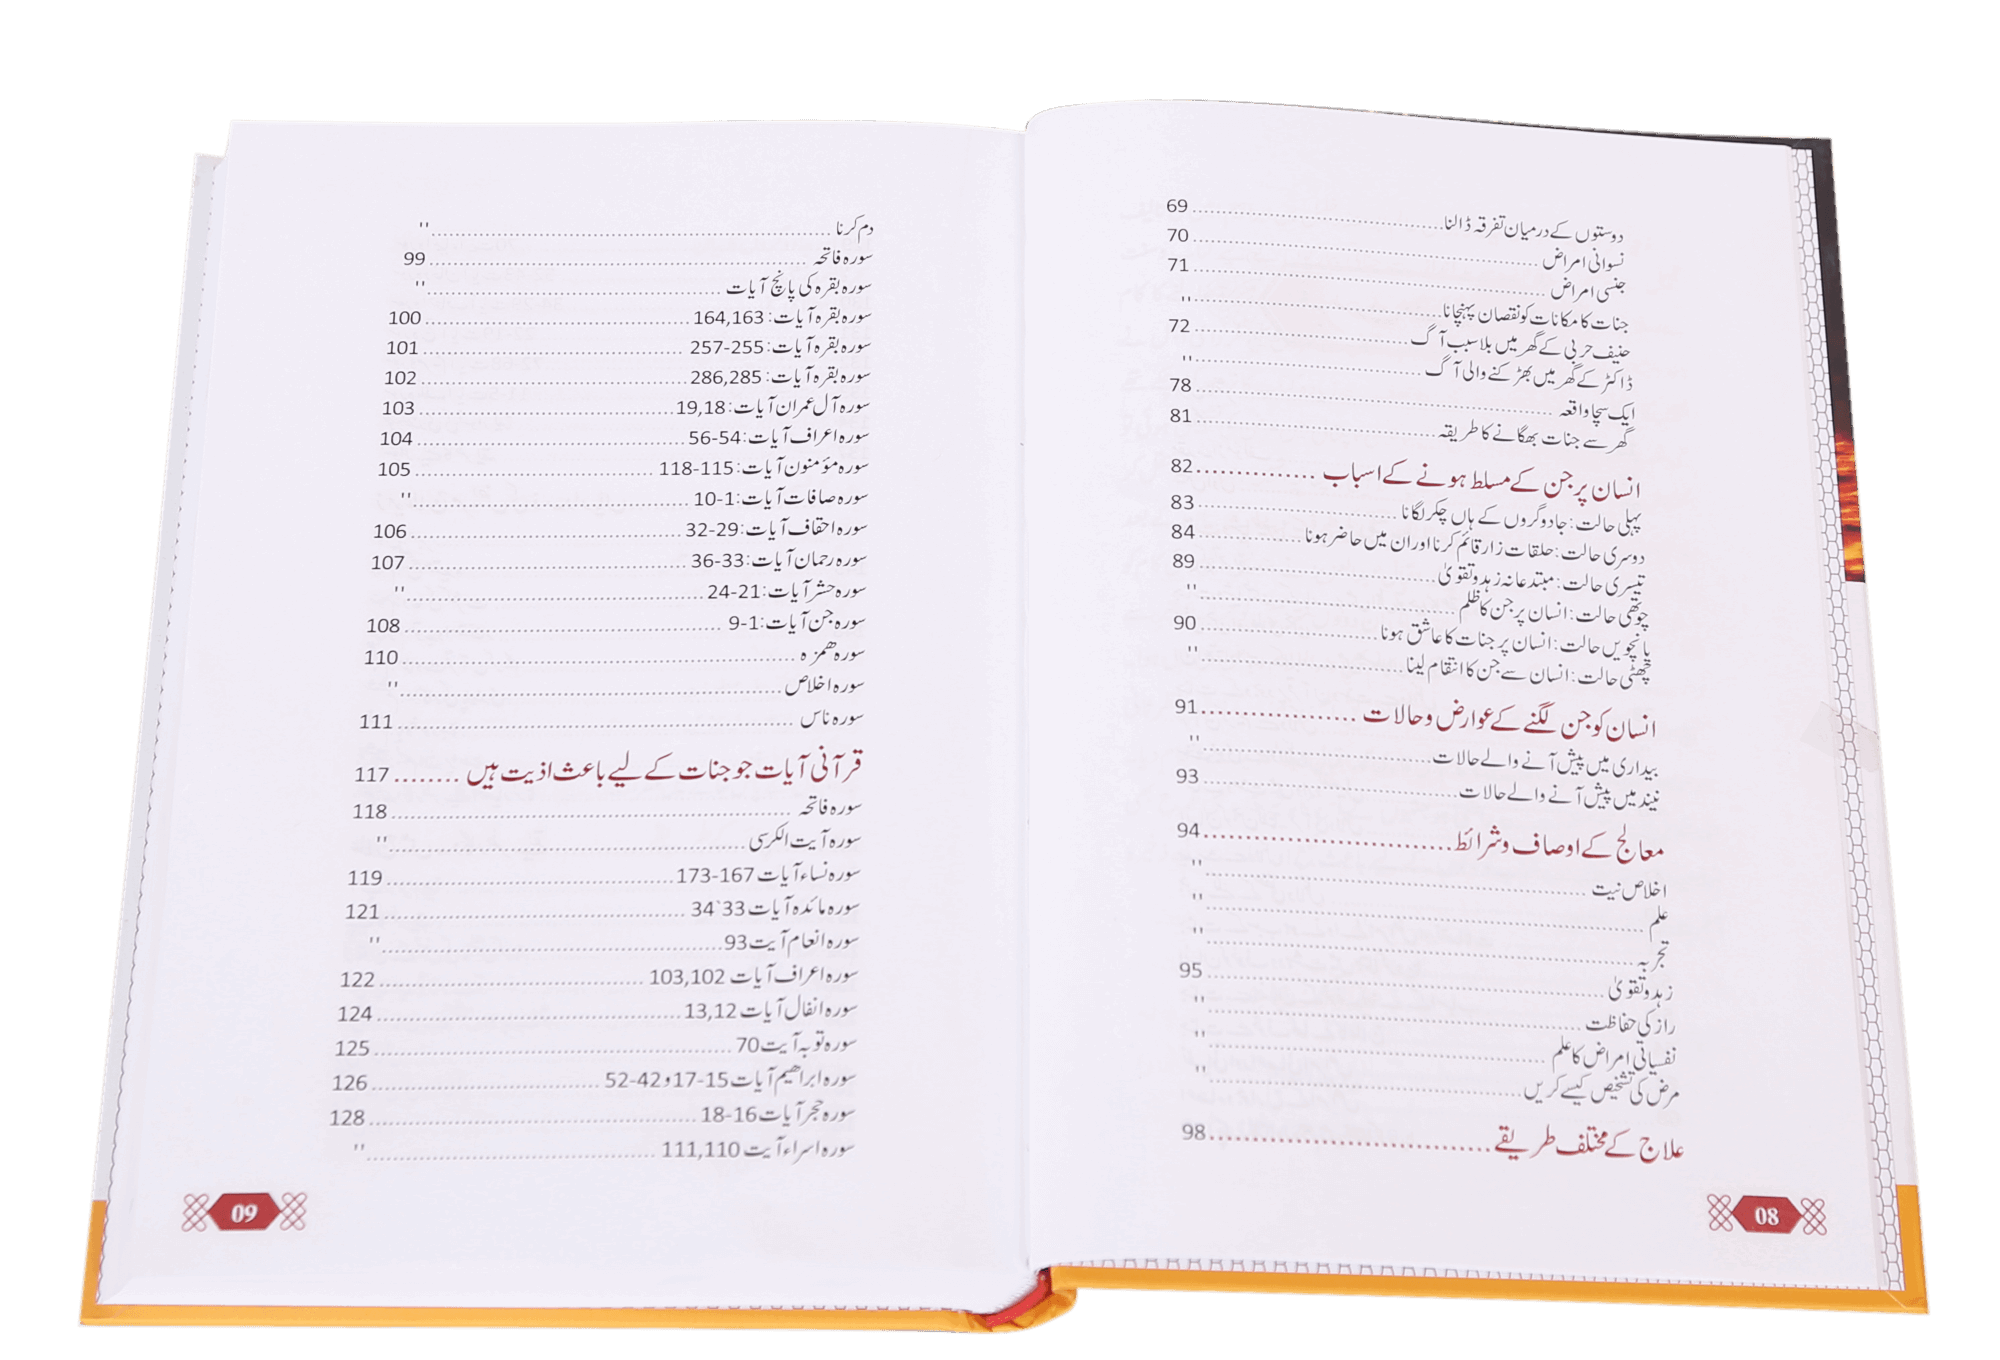 دوستوں کے درمیان تفرقہ ڈالنا ........ 69
نسوانی امراض ........ 70
جنسی امراض ........ 71
جنات کا مکانات کو نقصان پہنچانا ........ "
حنیف حربی کے گھر میں بلا سبب آگ ........ 72
ڈاکٹر کے گھر میں بھڑکنے والی آگ ........ "
ایک سچا واقعہ ........ 78
گھر سے جنات بھگانے کا طریقہ ........ 81
انسان پر جن کے مسلط ہونے کے اسباب ........ 82
پہلی حالت: جادوگروں کے ہاں چکر لگانا ........ 83
دوسری حالت: حلقات زار قائم کرنا اور ان میں حاضر ہونا ........ 84
تیسری حالت: مبتدعانہ زہد و تقویٰ ........ 89
چوتھی حالت: انسان پر جن کا ظلم ........ "
پانچویں حالت: انسان پر جنات کا عاشق ہونا ........ 90
چھٹی حالت: انسان سے جن کا انتقام لینا ........ "
انسان کو جن لگنے کے عوارض و حالات ........ 91
بیداری میں پیش آنے والے حالات ........ "
نیند میں پیش آنے والے حالات ........ 93
معالج کے اوصاف و شرائط ........ 94
اخلاص نیت ........ "
علم ........ "
تجربہ ........ "
زہد و تقویٰ ........ 95
راز کی حفاظت ........ "
نفسیاتی امراض کا علم ........ "
مرض کی تشخیص کیسے کریں ........ "
علاج کے مختلف طریقے ........ 98
08
دم کرنا ........ "
سورہ فاتحہ ........ 99
سورہ بقرہ کی پانچ آیات ........ "
سورہ بقرہ آیات: 164,163 ........ 100
سورہ بقرہ آیات: 257-255 ........ 101
سورہ بقرہ آیات: 286,285 ........ 102
سورہ آل عمران آیات: 19,18 ........ 103
سورہ اعراف آیات: 56-54 ........ 104
سورہ مؤمنون آیات: 118-115 ........ 105
سورہ صافات آیات: 10-1 ........ "
سورہ احقاف آیات: 32-29 ........ 106
سورہ رحمان آیات: 36-33 ........ 107
سورہ حشر آیات: 24-21 ........ "
سورہ جن آیات: 9-1 ........ 108
سورہ ھمزہ ........ 110
سورہ اخلاص ........ "
سورہ ناس ........ 111
قرآنی آیات جو جنات کے لیے باعث اذیت ہیں ........ 117
سورہ فاتحہ ........ 118
سورہ آیت الکرسی ........ "
سورہ نساء آیات 173-167 ........ 119
سورہ مائدہ آیات 34`33 ........ 121
سورہ انعام آیت 93 ........ "
سورہ اعراف آیات 103,102 ........ 122
سورہ انفال آیات 13,12 ........ 124
سورہ توبہ آیت 70 ........ 125
سورہ ابراھیم آیات 17-15 و 52-42 ........ 126
سورہ حجر آیات 18-16 ........ 128
سورہ اسراء آیت 111,110 ........ "
09